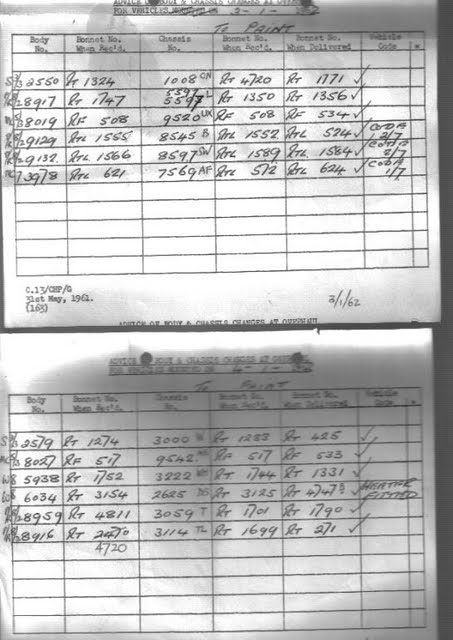 ADVICE OF BODY & CHASSIS CHANGES AT OVERHAUL
FOR VEHICLES
To PAINT
Body No. Bonnet No. When Rec'd. Chassis No. Bonnet No. Bonnet No. When Delivered Vehicle Code
2550 RT 1324 1008 CN RT 4720 RT 1771 ✓
8917 RT 1747 5597 L RT 1350 RT 1356 ✓
8019 RF 508 9520 UX RF 508 RF 534 ✓
9129 RTL 1555 8545 B RTL 1552 RTL 524 ✓ CODE 2/7
9132 RTL 1566 8597 SW RTL 1589 RTL 1584 ✓ CODE 2/7
3978 RTL 621 7569 AF RTL 572 RTL 624 ✓ CODE 1/7
C.13/CHF/G
31st May, 1961.
(163)
3/1/62
ADVICE OF BODY & CHASSIS CHANGES AT OVERHAUL
ADVICE OF BODY & CHASSIS CHANGES AT OVERHAUL
FOR VEHICLES 4 - 1 -
To PAINT
Body No. Bonnet No. When Rec'd. Chassis No. Bonnet No. Bonnet No. When Delivered Vehicle Code
2579 RT 1274 3000 RT 1283 RT 425 ✓
8027 RF 517 9542 RF 517 RF 533 ✓
W8 5938 RT 1752 3222 RT 1744 RT 1331 ✓
W8 6034 RT 3154 2625 RT 3125 RT 4747 ✓ HEATER FITTED
8959 RT 4811 3059 T RT 1701 RT 1790 ✓
8916 RT 2470 3114 TL RT 1699 RT 271 ✓
4720